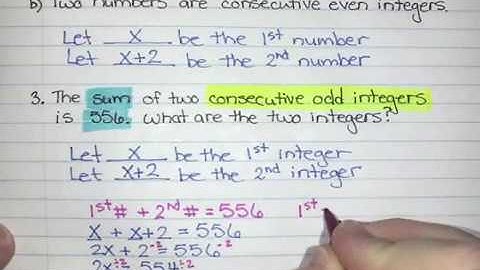 b) Two numbers are consecutive even integers.
Let x be the 1st number
Let x+2 be the 2nd number
3. The sum of two consecutive odd integers
is 556. What are the two integers?
Let x be the 1st integer
Let x+2 be the 2nd integer
1st # + 2nd # = 556 1st
x + x+2 = 556
2x + 2 -2 = 556 -2
2x ÷2 = 554 ÷2